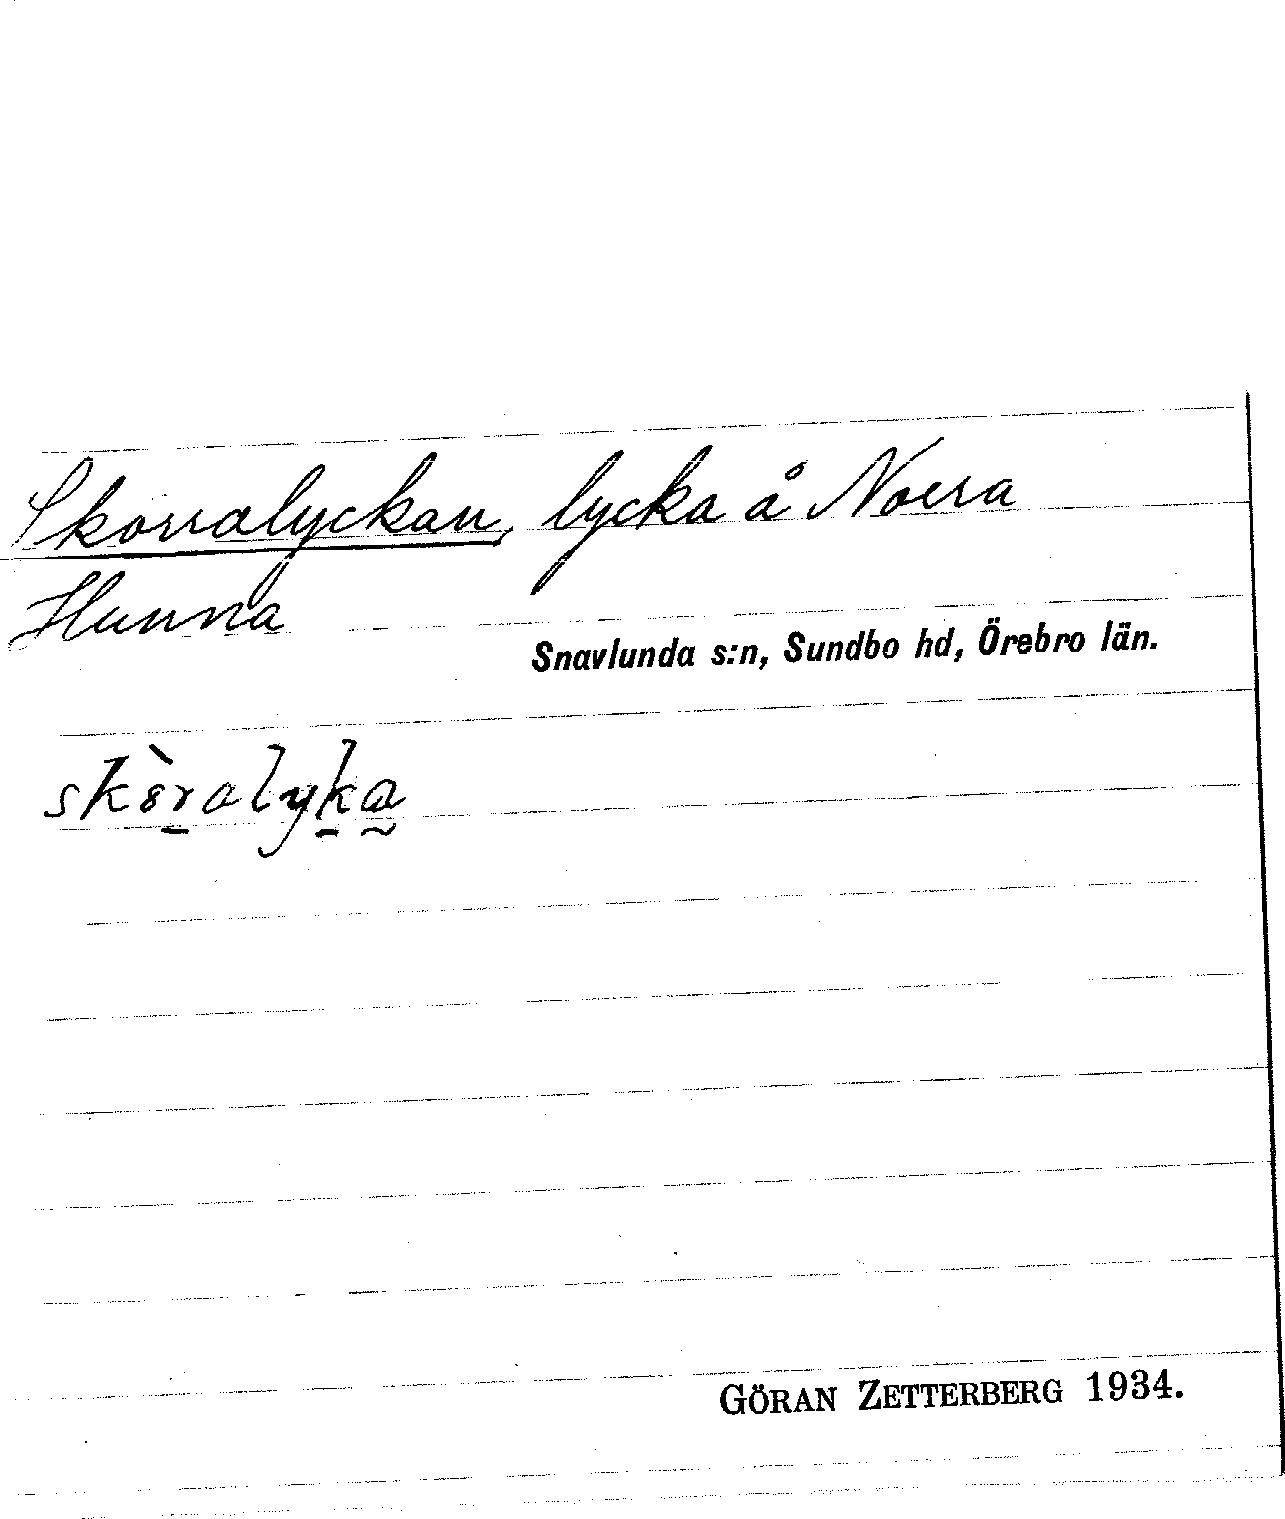 Skörralyckan, lycka å Noera
Hunna
Snavlunda s:n, Sundbo hd, Örebro län.
GÖRAN ZETTERBERG 1934.